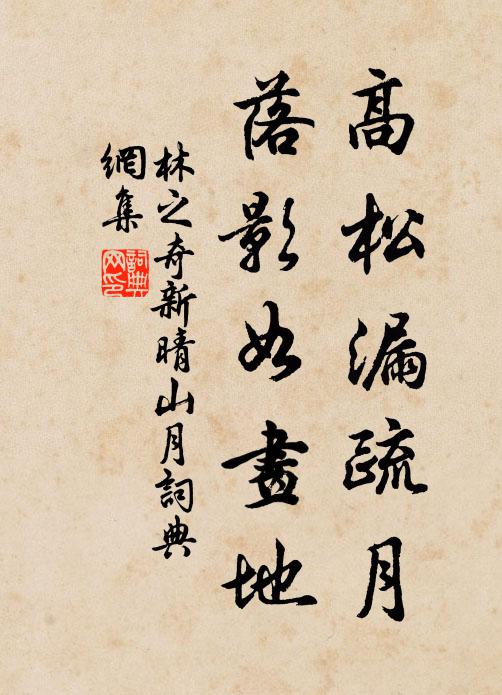 高松漏疏月
落影如畫地
林之奇新晴山月詞典
網集
詞典
网印